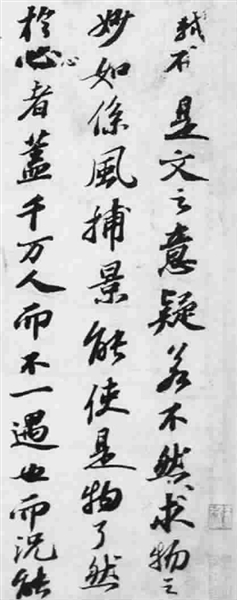 是文之意疑若不然求物之
妙如係風捕景能使是物了然
於心心者蓋千万人而不一遇也而况能